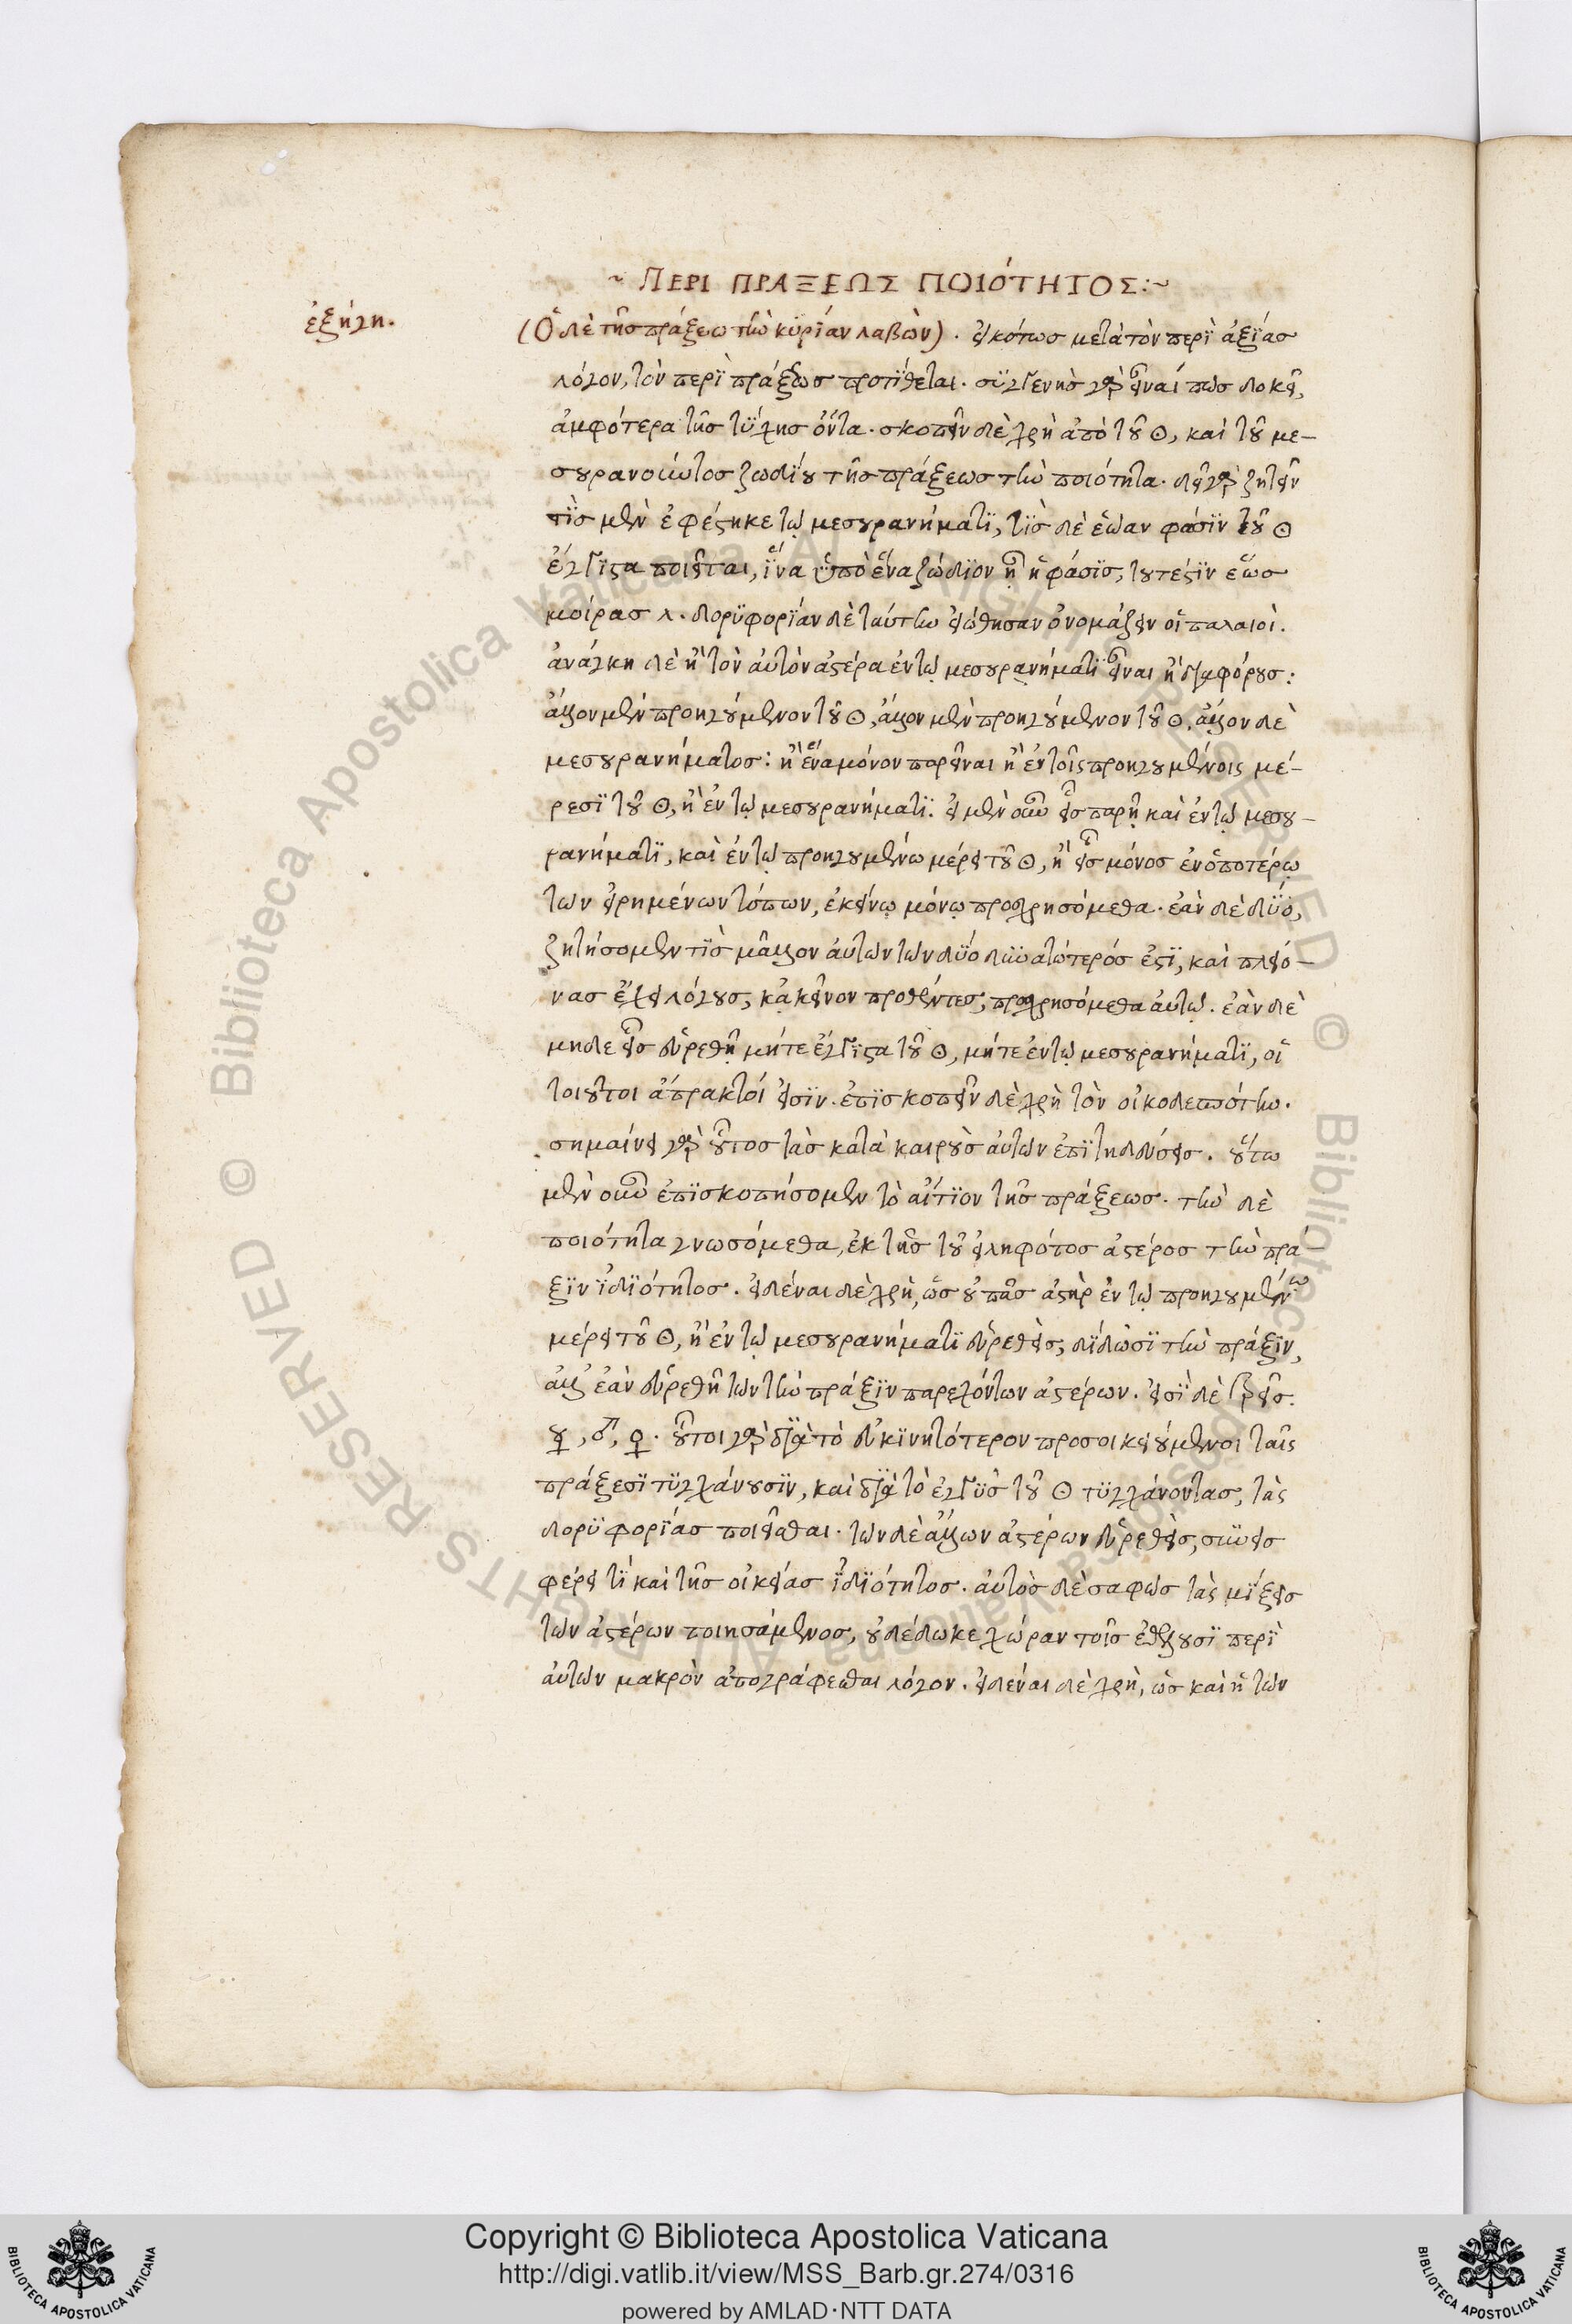 ~ ΠΕΡΙ ΠΡΑΞΕΩΣ ΠΟΙΌΤΗΤΟΣ:~
ἐξήγη.
(Ὁ δὲ τῆς πράξεως τὴν κϋρίαν λαβὼν). εἰκότως μετὰ τὸν περϊ ἀξίας
λόγον, τὸν περϊ πράξεως προτίθεται. συγγενὴς γὰρ εἶναί πως δοκεῖ,
ἀμφότερα τῆς τύχης ὄντα. σκοπεῖν δὲ χρὴ ἀπὸ τοῦ ☉, καὶ τοῦ με-
σουρανοῦντος ζωδίου τῆς πράξεως τὴν ποιότητα. δεῖ γὰρ ζητεῖν
τὶς μὲν ἐφέστηκε τῷ μεσουρανήματι, τὶς δὲ ἑώαν φάσιν τοῦ ☉
ἔγγιστα ποιεῖται, ἵνα ὑπὸ ἕνα ζώδιον ᾖ ἡ φάσις, τουτέστιν ἕως
μοίρας λ. δορυφορίαν δὲ ταύτην εἰώθησαν ὀνομάζειν οἱ παλαιοί.
ἀνάγκη δὲ ἢ τὸν αὐτὸν ἀστέρα ἐν τῷ μεσουρανήματι εἶναι ἢ διαφόρους:
ἄλλον μὲν προηγούμενον τοῦ ☉, ἄλλον μὲν προηγούμενον τοῦ ☉, ἄλλον δὲ
μεσουρανήματος: ἢ ἕνα μόνον παρεῖναι ἢ ἐν τοῖς προηγουμένοις μέ-
ρεσι τοῦ ☉, ἢ ἐν τῷ μεσουρανήματι. εἰ μὲν οὖν εἷς παρῇ καὶ ἐν τῷ μεσου-
ρανήματι, καὶ ἐν τῷ προηγουμένω μέρει τοῦ ☉, ἢ εἷς μόνος ἐν ὁποτέρῳ
τῶν εἰρημένων τόπων, ἐκείνῳ μόνῳ προσχρησόμεθα. ἐὰν δὲ δύο,
ζητήσομεν τὶς μᾶλλον αὐτῶν τῶν δύο δυνατώτερός ἐστι, καὶ πλείο-
νας ἔχει λόγους, κἀκεῖνον προθέντες, προσχρησόμεθα αὐτῷ. ἐὰν δὲ
μηδε εἷς εὑρεθῇ μήτε ἔγγιστα τοῦ ☉, μήτε ἐν τῷ μεσουρανήματι, οἱ
τοιοῦτοι ἄπρακτοί εἰσιν. ἐπισκοπεῖν δὲ χρὴ τὸν οἰκοδεσπότην.
σημαίνει γὰρ οὗτος τὰς κατὰ καιροὺς αὐτῶν ἐπιτηδεύσεις. οὕτω
μὲν οὖν ἐπισκοπήσομεν τὸ αἴτιον τῆς πράξεως. τὴν δὲ
ποιότητα γνωσόμεθα, ἐκ τῆς τοῦ εἰληφότος ἀστέρος τὴν πρα
ξιν ἰδιότητος. εἰδέναι δὲ χρὴ, ὡς οὐ πᾶς ἀστὴρ ἐν τῷ προηγουμένω
μέρει τοῦ ☉, ἢ ἐν τῷ μεσουρανήματι εὑρεθεὶς, δίδωσι τὴν πράξιν,
ἀλλ' ἐὰν εὑρεθῇ τῶν τὴν πράξιν παρεχόντων ἀστέρων. εἰσὶ δὲ τρεῖς.
☿, ♂, ♀. οὗτοι γὰρ διὰ τὸ εὐκινητότερον προσοικειούμενοι ταῖς
πράξεσι τυγχάνουσιν, καὶ διὰ τὸ ἐγγὺς τοῦ ☉ τυγχάνοντας, τὰς
δορυφορίας ποιεῖσθαι. τῶν δὲ ἄλλων ἀστέρων εὑρεθεὶς, συνεισ
φέρει τί καὶ τῆς οἰκείας ἰδιότητος. αὐτὸς δὲ σαφῶς τὰς μίξεις
τῶν ἀστέρων ποιησάμενος, οὐ δέδωκε χώραν τοῖς ἐθέλουσι περὶ
αὐτῶν μακρὸν ἀπογράφεσθαι λόγον. εἰδέναι δὲ χρὴ, ὡς καὶ ἡ τῶν
Copyright © Biblioteca Apostolica Vaticana
http://digi.vatlib.it/view/MSS_Barb.gr.274/0316
powered by AMLAD·NTT DATA
BIBLIOTECA APOSTOLICA VATICANA
BIBLIOTECA APOSTOLICA VATICANA